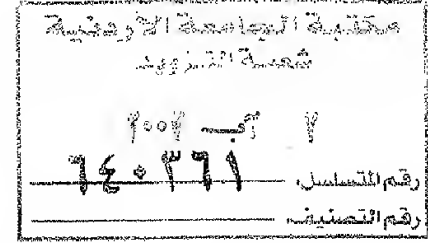 مكتبة الجامعة الأردنية
شعبة التزويد
٢ آب ٢٠٠٢
رقم التسلسل ٦٤٠٣٦١
رقم التصنيف